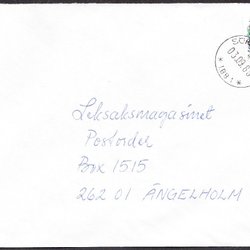 Leksaksmagasinet
Postorder
Box 1515
262 01 ÄNGELHOLM